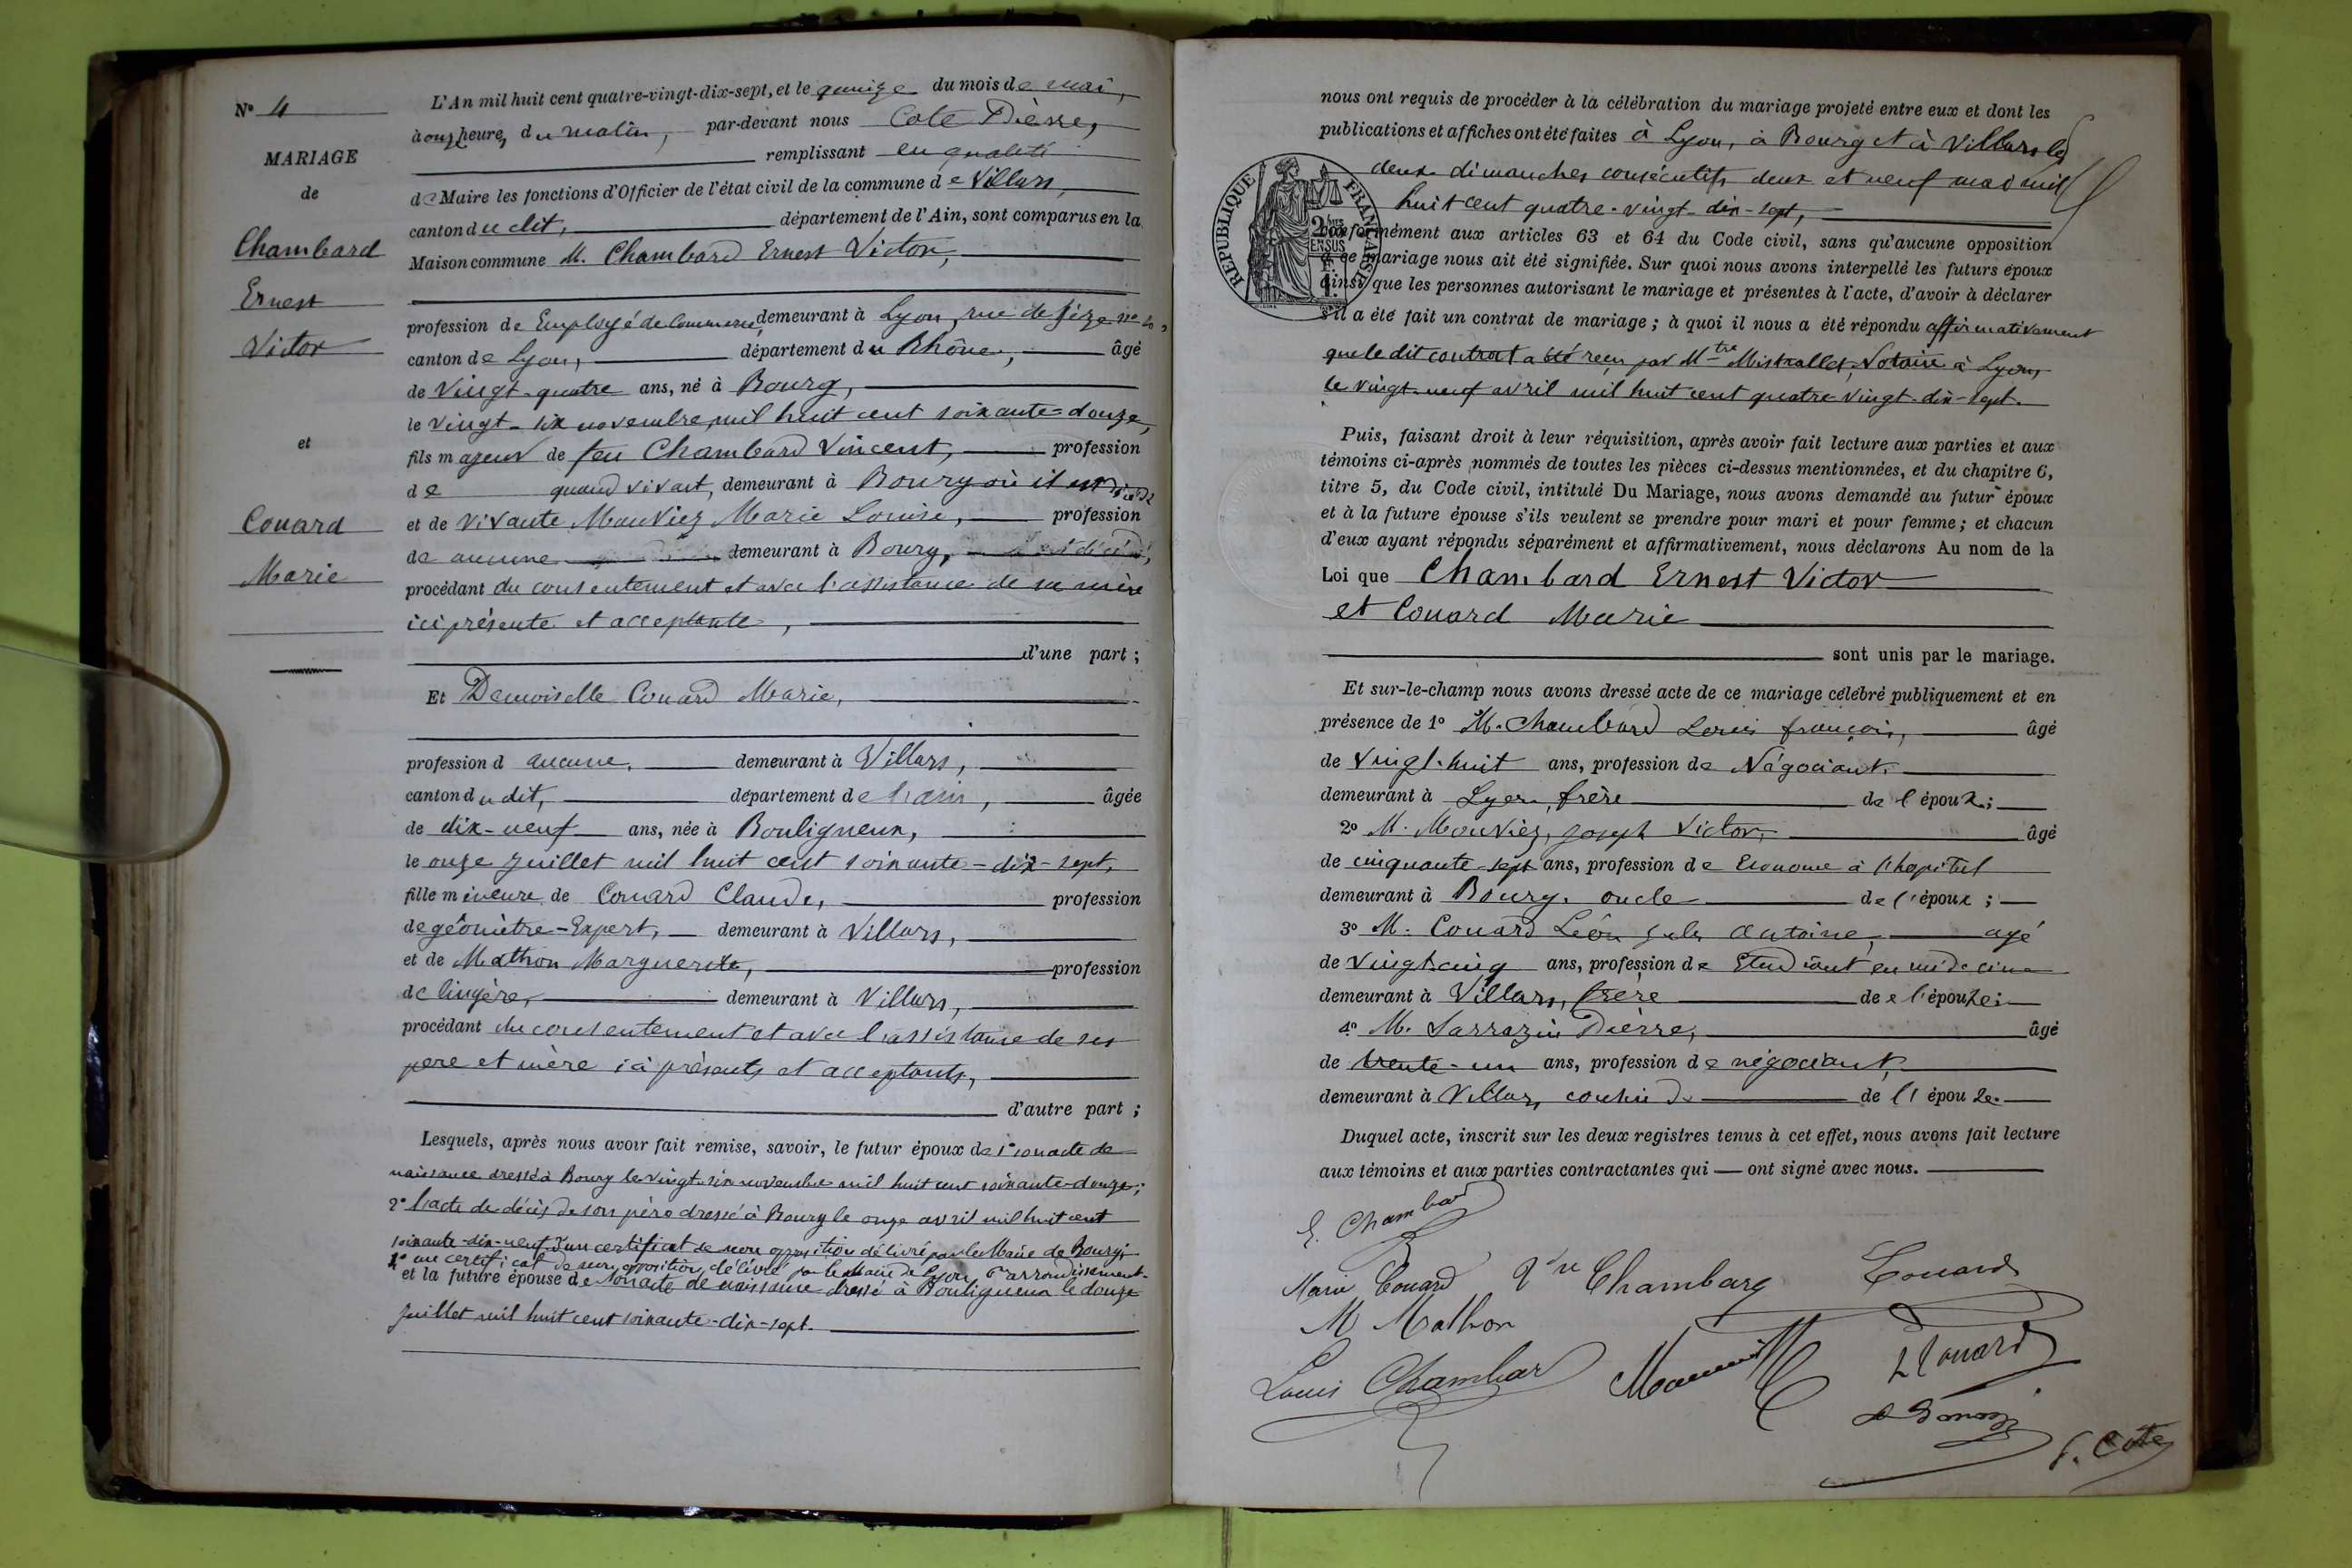 N° 4
MARIAGE
de
Chambard
Ernest
Victor
et
Couard
Marie
L'An mil huit cent quatre-vingt-dix-sept, et le quinze du mois de mai,
à onze heures du matin, par-devant nous Cote Pièrre,
remplissant en qualité
de Maire les fonctions d'Officier de l'état civil de la commune de Villars,
canton du dit, département de l'Ain, sont comparus en la
Maison commune M. Chambard Ernest Victor,
profession de Employé de Commerce, demeurant à Lyon, rue de Sèze n°
canton de Lyon, département du Rhône, âgé
de vingt-quatre ans, né à Bourg,
le vingt-six novembre mil huit cent soixante-douze,
fils majeur de feu Chambard Vincent, profession
de quand vivait, demeurant à Bourg où il est décédé
et de vivante Mouviez Marie Louise, profession
de aucune demeurant à Bourg,
procédant du consentement et avec l'assistance de sa mère
ici présente et acceptante,
d'une part ;
Et Demoiselle Couard Marie,
profession d aucune, demeurant à Villars,
canton du dit, département de l'ain, âgée
de dix-neuf ans, née à Bouligneux,
le onze juillet mil huit cent soixante-dix-sept,
fille mineure de Couard Claude, profession
de géomètre-Expert, demeurant à Villars,
et de Mathon Marguerite, profession
de lingère, demeurant à Villars,
procédant du consentement et avec l'assistance de ses
père et mère ici présents et acceptants,
d'autre part ;
Lesquels, après nous avoir fait remise, savoir, le futur époux de 1° son acte de
naissance dressé à Bourg le vingt-six novembre mil huit cent soixante-douze;
2° l'acte de décès de son père dressé à Bourg le onze avril mil huit cent
soixante-dix-neuf 3° un certificat de non opposition délivré par le Maire de Bourg;
4° un certificat de non opposition délivré par le Maire de Lyon, 6e arrondissement.
et la future épouse de son acte de naissance dressé à Bouligneux le douze
juillet mil huit cent soixante-dix-sept.
nous ont requis de procéder à la célébration du mariage projeté entre eux et dont les
publications et affiches ont été faites à Lyon, à Bourg et à Villars les
deux dimanches consécutifs deux et neuf mai mil
huit cent quatre-vingt-dix-sept,
REPUBLIQUE FRANÇAISE
conformément aux articles 63 et 64 du Code civil, sans qu'aucune opposition
à ce mariage nous ait été signifiée. Sur quoi nous avons interpellé les futurs époux
ainsi que les personnes autorisant le mariage et présentes à l'acte, d'avoir à déclarer
s'il a été fait un contrat de mariage ; à quoi il nous a été répondu affirmativement
que le dit contrat a été reçu par Mtre Mistrallet, Notaire à Lyon,
le vingt-neuf avril mil huit cent quatre vingt-dix-sept.
Puis, faisant droit à leur réquisition, après avoir fait lecture aux parties et aux
témoins ci-après nommés de toutes les pièces ci-dessus mentionnées, et du chapitre 6,
titre 5, du Code civil, intitulé Du Mariage, nous avons demandé au futur époux
et à la future épouse s'ils veulent se prendre pour mari et pour femme ; et chacun
d'eux ayant répondu séparément et affirmativement, nous déclarons Au nom de la
Loi que Chambard Ernest Victor
et Couard Marie
sont unis par le mariage.
Et sur-le-champ nous avons dressé acte de ce mariage célébré publiquement et en
présence de 1° M. Chambard Louis françois, âgé
de vingt-huit ans, profession de Négociant,
demeurant à Lyon, frère de l'époux ;
2° M. Mouviez, Joseph Victor, âgé
de cinquante-sept ans, profession de Econome à l'hopital
demeurant à Bourg, oncle de l'époux ;
3° M. Couard Léon Jules Antoine, agé
de vingt-cinq ans, profession de Etudiant en médecine
demeurant à Villars, frère de l'épouse ;
4° M. Sarrazin Pièrre, âgé
de trente-un ans, profession de négociant,
demeurant à Villars, cousin de l'épouse.
Duquel acte, inscrit sur les deux registres tenus à cet effet, nous avons fait lecture
aux témoins et aux parties contractantes qui ont signé avec nous.
E. Chambard
Marie Couard Vve Chambard Couard
M Mathon
Louis Chambard L Couard
P. Cote